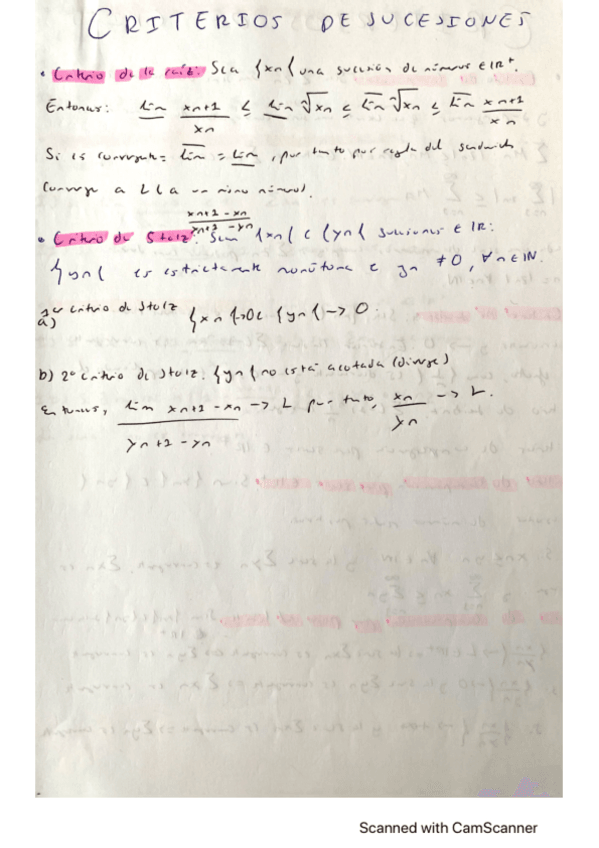 CRITERIOS DE SUCESIONES
• Criterio de la raíz: Sea {xn{ una sucesión de números ∈ IR⁺.
Entonces: lim xn+1/xn ≤ lim ⁿ√xn ≤ lim ⁿ√xn ≤ lim xn+1/xn
Si es convergente lim = lim, por tanto por regla del sandwich
converge a L (a un mismo número).
xn+1 - xn / yn+1 - yn
• Criterio de Stolz: Sean {xn{ e {yn{ sucesiones ∈ IR:
{yn{ es estrictamente monótona e yn ≠ 0, ∀n∈IN.
1er criterio de Stolz
a) {xn{→0 e {yn{→ 0
b) 2º criterio de Stolz: {yn{ no está acotada (diverge)
Entonces, lim xn+1 - xn / yn+1 - yn → L por tanto, xn/yn → L.
Scanned with CamScanner